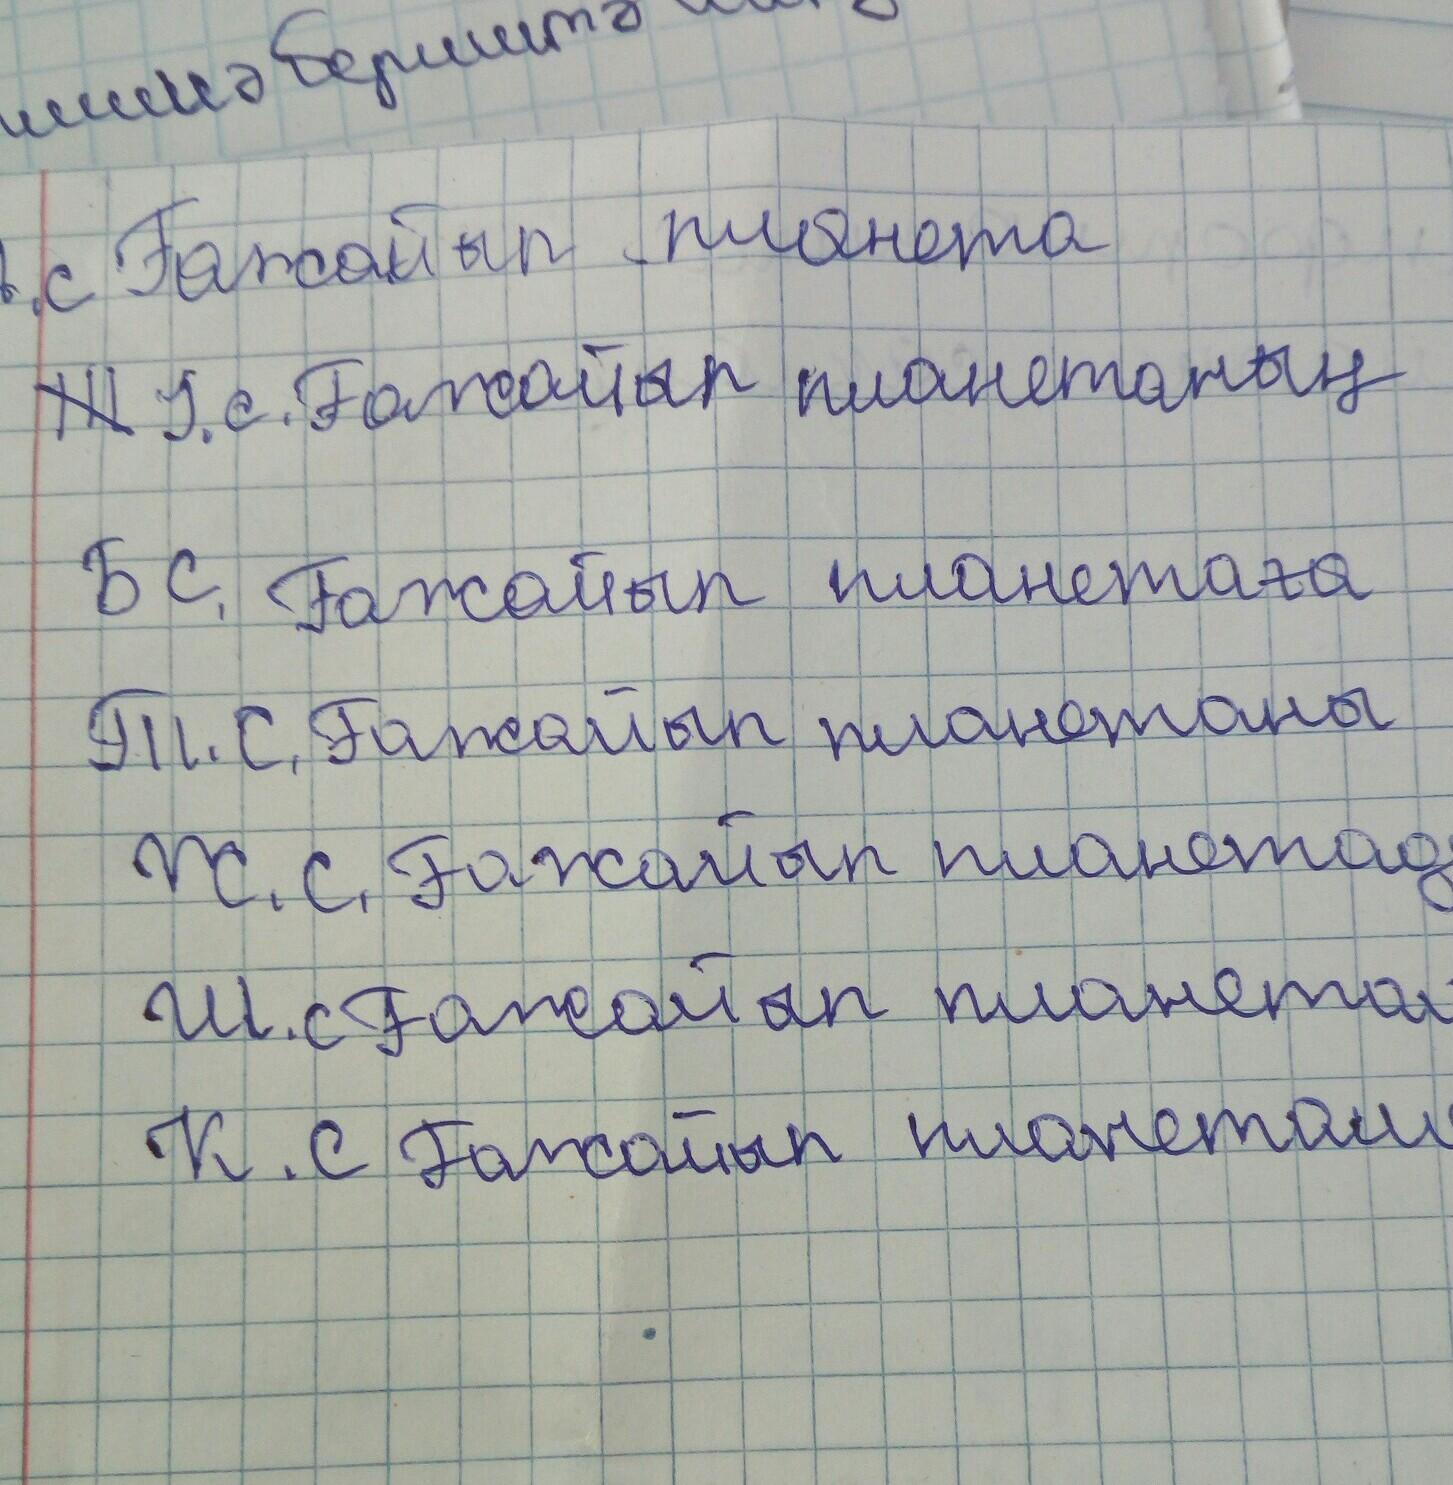 с Ғажайып планета
І.с. Ғажайып планетаның
Б С, Ғажайып планетаға
Т. С, Ғажайып планетаны
Ж. С, Ғажайып планетад
Ш. с Ғажайып планета
К. С Ғажайып планетам